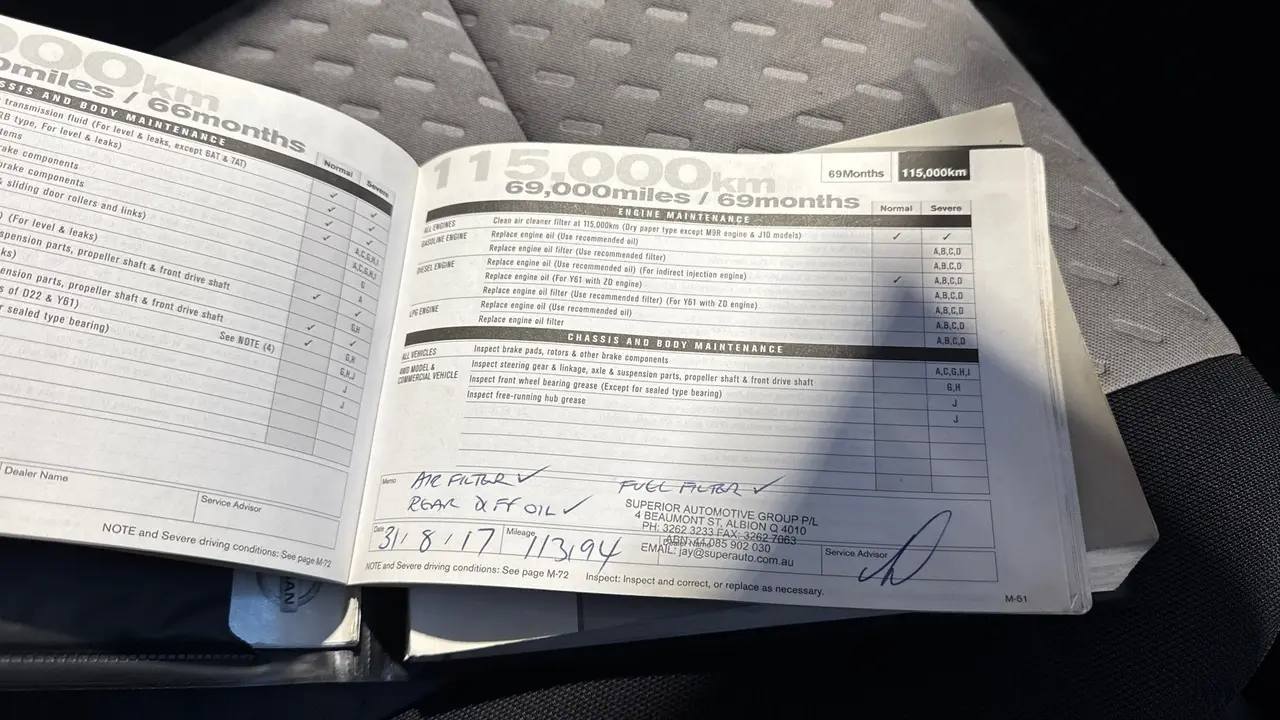 000km
0miles / 66months
SSIS AND BODY MAINTENANCE
Normal
Severe
transmission fluid (For level & leaks, except 6AT & 7AT)
RB type, For level & leaks)
tems
rake components
rake components
& sliding door rollers and links)
A,C,G,H,I
) (For level & leaks)
A,C,G,H,I
spension parts, propeller shaft & front drive shaft
G
ks)
A
ension parts, propeller shaft & front drive shaft
s of D22 & Y61)
G,H
r sealed type bearing)
See NOTE (4)
G,H
G,H,J
J
J
Dealer Name
Service Advisor
NOTE and Severe driving conditions: See page M-72
115,000km
69,000miles / 69months
69Months
115,000km
ENGINE MAINTENANCE
Normal
Severe
ALL ENGINES Clean air cleaner filter at 115,000km (Dry paper type except M9R engine & J10 models) ✓ ✓
GASOLINE ENGINE Replace engine oil (Use recommended oil) A,B,C,D
Replace engine oil filter (Use recommended filter) A,B,C,D
DIESEL ENGINE Replace engine oil (Use recommended oil) (For indirect injection engine) ✓ A,B,C,D
Replace engine oil (For Y61 with ZD engine) A,B,C,D
Replace engine oil filter (Use recommended filter) (For Y61 with ZD engine) A,B,C,D
LPG ENGINE Replace engine oil (Use recommended oil) A,B,C,D
Replace engine oil filter A,B,C,D
CHASSIS AND BODY MAINTENANCE
ALL VEHICLES Inspect brake pads, rotors & other brake components A,C,G,H,I
4WD MODEL & COMMERCIAL VEHICLE Inspect steering gear & linkage, axle & suspension parts, propeller shaft & front drive shaft G,H
Inspect front wheel bearing grease (Except for sealed type bearing) J
Inspect free-running hub grease J
Memo AIR FILTER ✓ FUEL FILTER ✓
REAR DIFF OIL ✓
SUPERIOR AUTOMOTIVE GROUP P/L
4 BEAUMONT ST, ALBION Q 4010
PH: 3262 3233 FAX: 3262 7063
ABN 085 902 030
EMAIL: jay@superauto.com.au
Date 31.8.17
Mileage 113194
Service Advisor
NOTE and Severe driving conditions: See page M-72
Inspect: Inspect and correct, or replace as necessary.
M-51